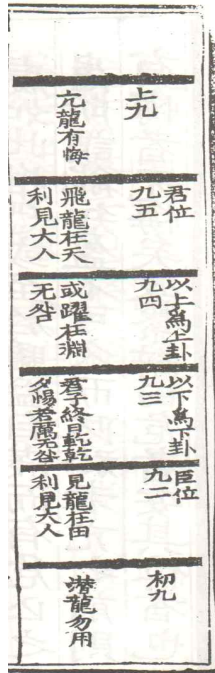 上九
亢龍有悔
君位
九五
飛龍在天
利見大人
以上爲上卦
九四
或躍在淵
无咎
以下爲下卦
九三
君子終日乾乾
夕惕若厲无咎
臣位
九二
見龍在田
利見大人
初九
潛龍勿用